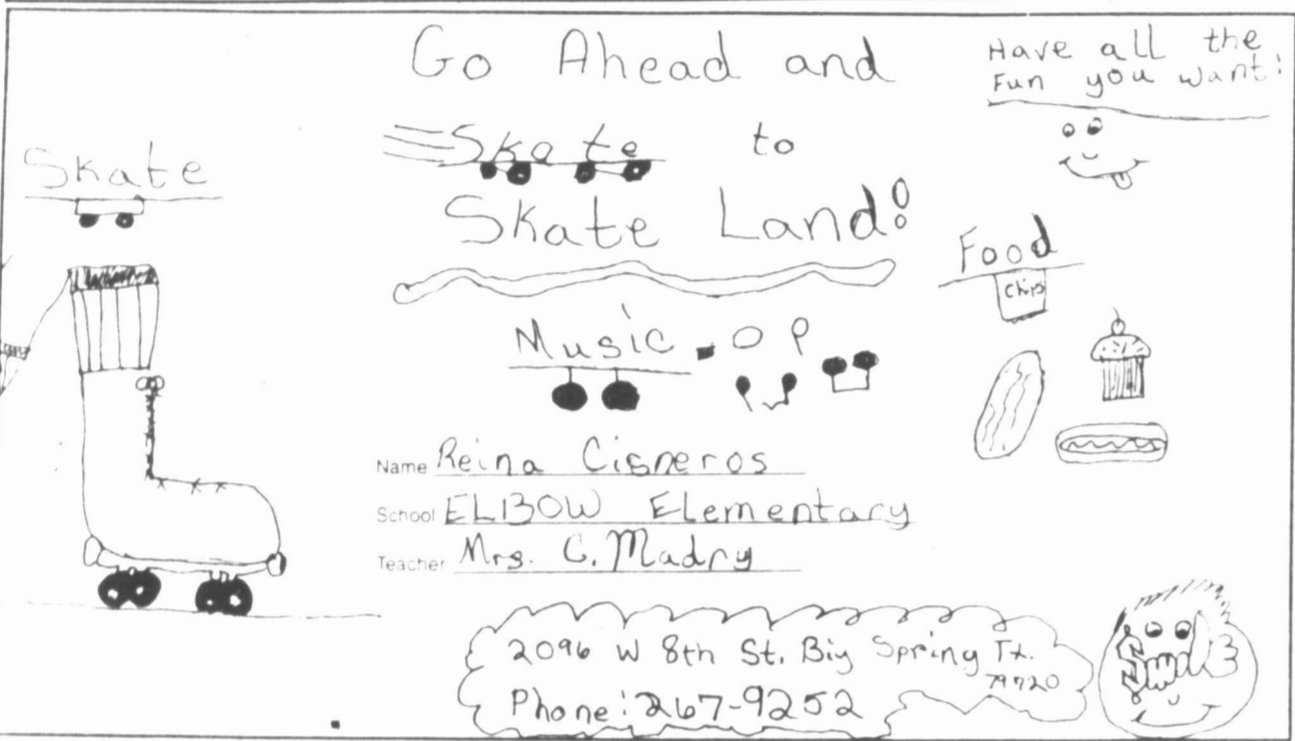 Go Ahead and
Skate to
Skate Land!
Have all the
Fun you want!
Skate
Food
chips
Music
Name Reina Cisneros
School ELBOW Elementary
Teacher Mrs. C. Madry
2096 W 8th St. Big Spring Tx.
79720
Phone: 267-9252